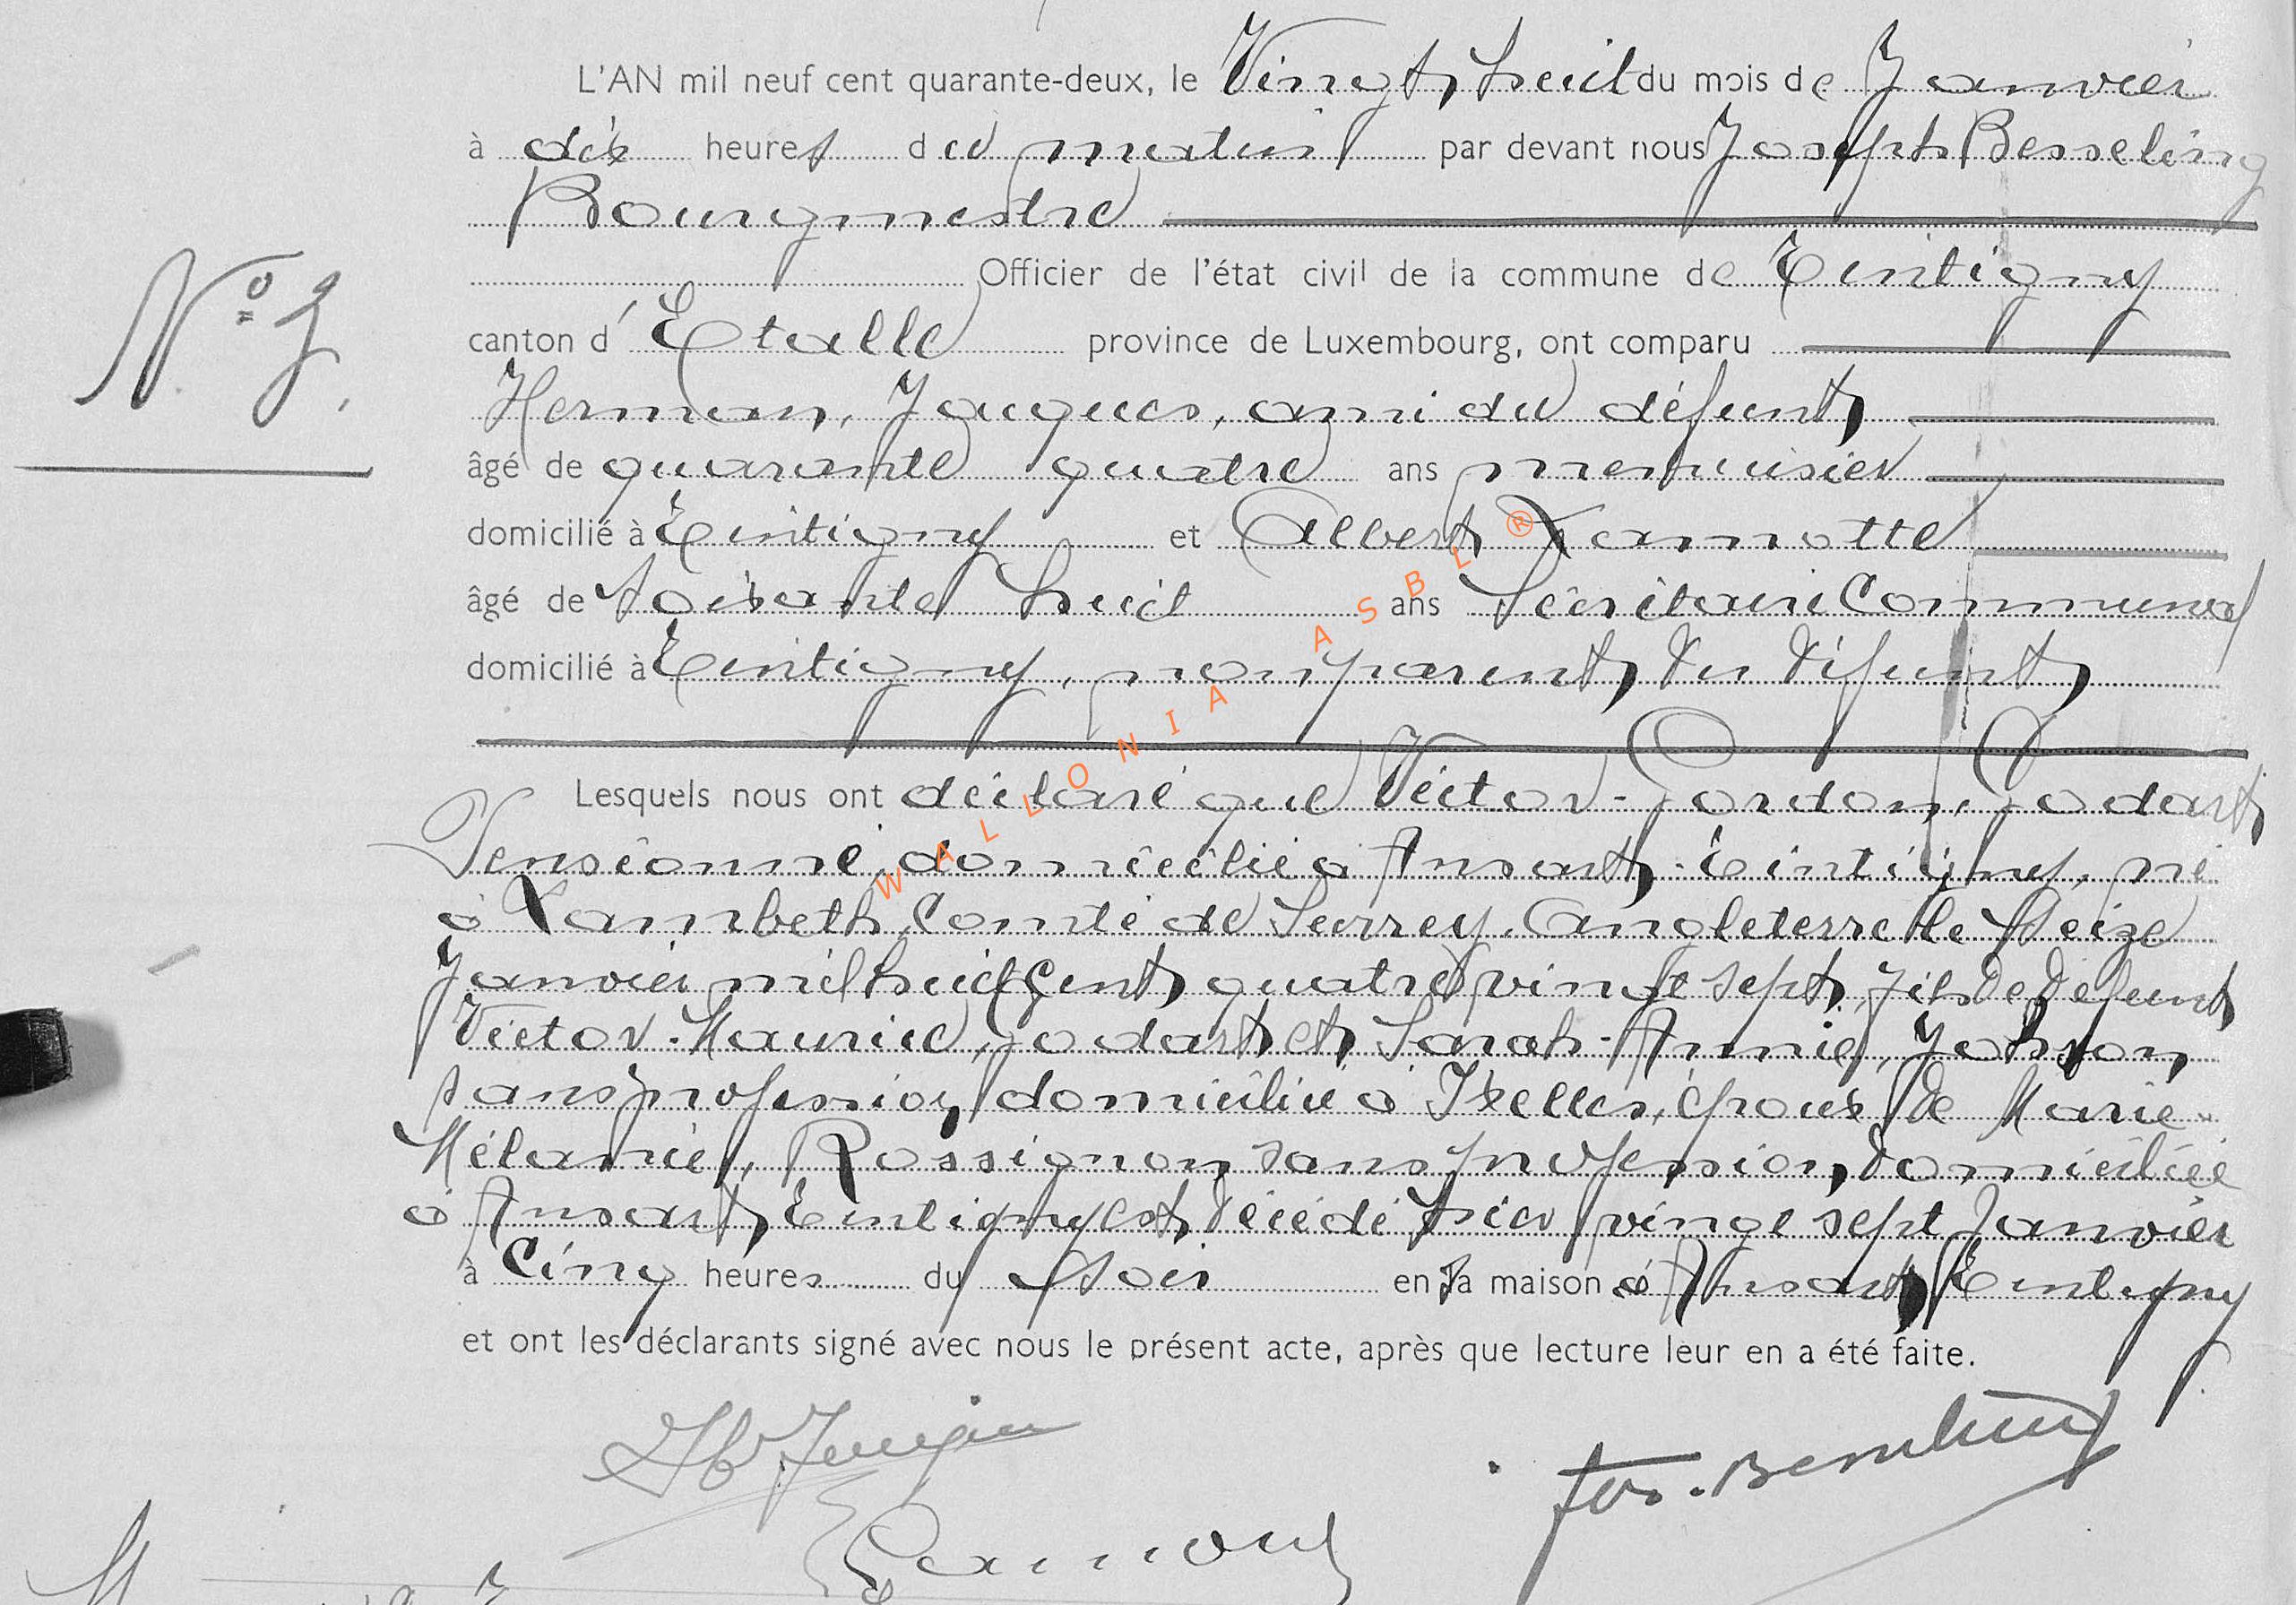 L'AN mil neuf cent quarante-deux, le Vingt huit du mois de Janvier
à dix heures du matin par devant nous Joseph Besseling
Bourgmestre
Officier de l'état civil de la commune de Tintigny
canton d'Etalle province de Luxembourg, ont comparu
Herman, Jacques, ami du défunt
âgé de quarante quatre ans menuisier
domicilié à Tintigny et Albert Lamotte
âgé de soixante huit ans Secrétaire Communal
domicilié à Tintigny, non parent du défunt
Lesquels nous ont déclaré que Victor-Gordon, Godart
Pensionné, domicilié à Ansart-Tintigny, né
à Lambeth, Comté de Surrey, Angleterre le Seize
Janvier mil huit Cent quatre vingt sept, fils de défunt
Victor-Maurice, Godart et Sarah-Annie, Jobson,
sans profession, domiciliée à Ixelles, époux de Marie-
Mélanie, Rossignon, sans profession, domiciliée
à Ansart, Tintigny est décédé hier vingt sept Janvier
à Cinq heures du soir en sa maison à Ansart, Tintigny
et ont les déclarants signé avec nous le présent acte, après que lecture leur en a été faite.
Jos. Besseling
N°
WALLONIA ASBL ®